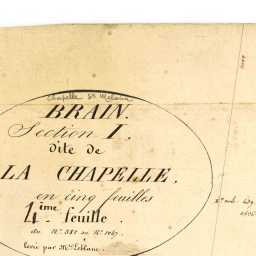 Chapelle St Melaine
BRAIN.
Section I.
dite de
LA CHAPELLE.
en cinq feuilles
4ième feuille.
du N° 881 au N° 1067.
levée par Mr Leblanc.